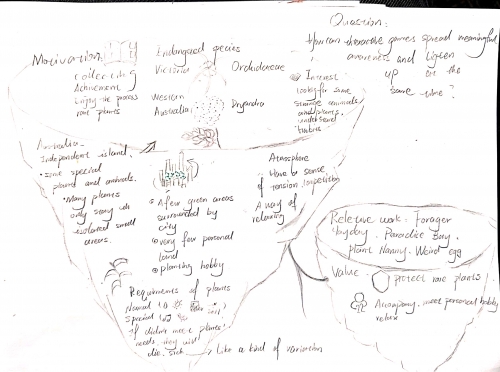 Question:
How can interactive games spread meaningful
awareness and liven
up at the
same time?
Motivation:
collecting
Achivement
Enjoy the process
rare plants
Endangered species
Victoria
Orchidaceae
Western
Australia
Dryandra
Interest
looking for some
strange animals
and plants.
understand
Australia
Independent island.
some special
plants and animals.
Many plants
only stay with
isolated small
areas.
A few green areas
surrounded by
city
very few personal
land
planting hobby
Atmosphere
Have a sense
of tension, competition
A way of
relaxing
Requirments of plants
Normal
Special
If didn't meet plants'
needs they will
die. sick
Like a kind of variation
Reletive work: Forager
Paradise Bay.
Plant Nanny. Weird egg
Value:
protect rare plants
Accompany. meet personal hobby
relax